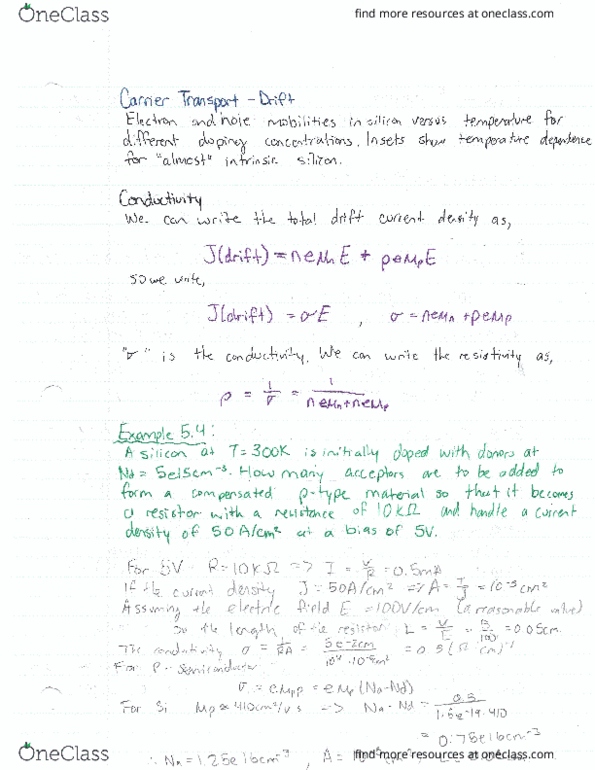 OneClass
find more resources at oneclass.com
Carrier Transport - Drift
Electron and hole mobilities in silicon versus temperature for
different doping concentrations. Insets show temperature dependence
for "almost" intrinsic silicon.
Conductivity
We can write the total drift current density as,
J(drift) = neμnE + peμpE
so we write,
J(drift) = σE , σ = neμn + peμp
"σ" is the conductivity. We can write the resistivity as,
ρ = 1/σ = 1/(neμn+neμp)
Example 5.4:
A silicon at T=300K is initially doped with donors at
Nd = 5e15cm⁻³. How many acceptors are to be added to
form a compensated p-type material so that it becomes
a resistor with a resistance of 10kΩ and handle a current
density of 50A/cm² at a bias of 5V.
For 5V R=10KΩ => I = V/R = 0.5mA
If the current density J = 50A/cm² => A = I/J = 10⁻⁵cm²
Assuming the electric field E = 100V/cm (a reasonable value)
so the length of the resistor L = V/E = 5/100 = 0.05cm
The conductivity σ = L/RA = 5e-2cm/(10⁴·10⁻⁵cm²) = 0.5(Ωcm)⁻¹
For P-Semiconductor
σ = eμpp = eμp(Na-Nd)
For Si μp≈410cm²/vs -> Na-Nd = 0.5/(1.6e-19·410)
= 0.75e16cm⁻³
∴ Na = 1.25e16cm⁻³ ,
OneClass
find more resources at oneclass.com